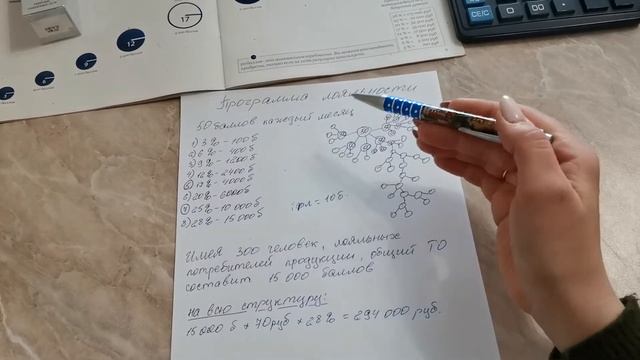 17
12
Программа лояльности
50 баллов каждый месяц
1) 3% - 100 б
2) 6% - 400 б
3) 9% - 1200 б
4) 12% - 2400 б
5) 17% - 4000 б
6) 20% - 6000 б
7) 25% - 10 000 б
8) 28% - 15 000 б
1 чел = 10 б.
Имея 300 человек, лояльных
потребителей продукции, общий ТО
составит 15 000 баллов
на всю структуру:
15 000 б * 70 руб * 28% = 294 000 руб.
CE/C
0